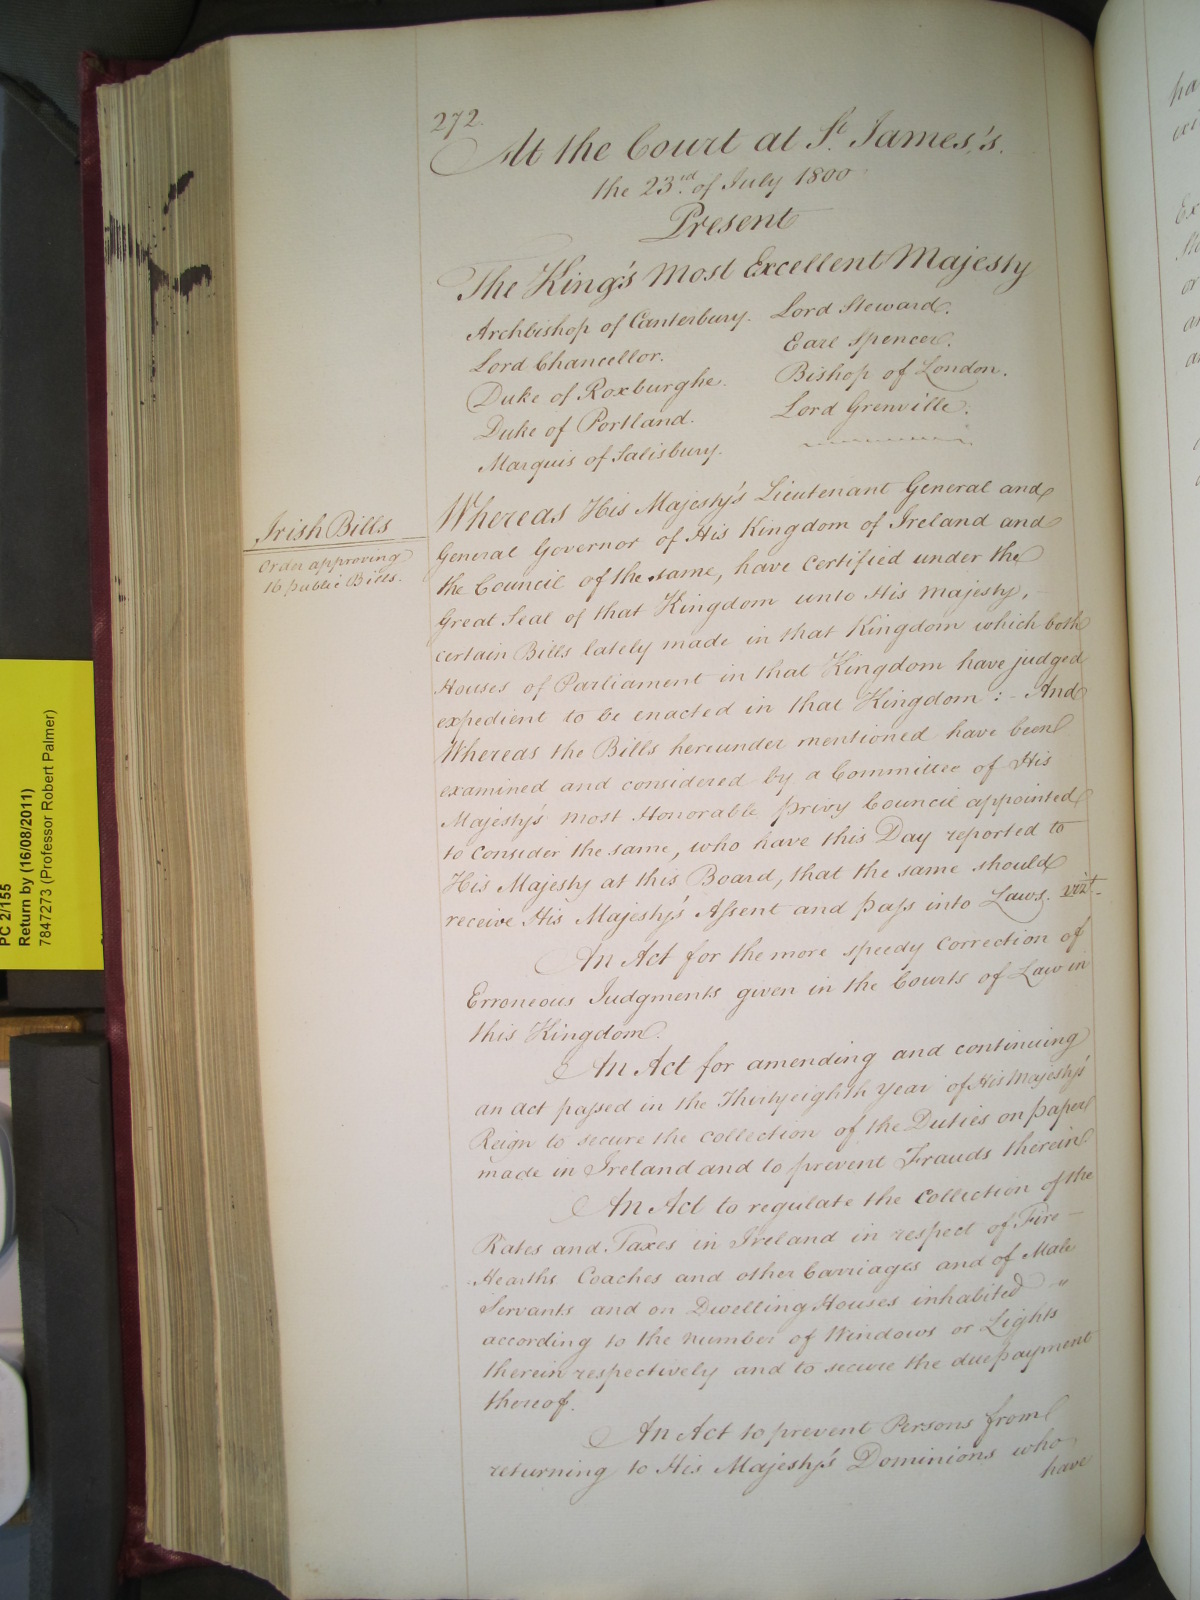 272.
At the Court at St. James's.
the 23rd. of July 1800
Present
The King's Most Excellent Majesty
Archbishop of Canterbury. Lord Steward.
Lord Chancellor. Earl Spencer.
Duke of Roxburghe. Bishop of London.
Duke of Portland. Lord Grenville.
Marquis of Salisbury.
Irish Bills
Order approving
16 public Bills.
Whereas His Majesty's Lieutenant General and
General Governor of His Kingdom of Ireland and
the Council of the same, have certified under the
Great Seal of that Kingdom unto His Majesty,
certain Bills lately made in that Kingdom which both
Houses of Parliament in that Kingdom have judged
expedient to be enacted in that Kingdom :- And
Whereas the Bills hereunder mentioned have been
examined and considered by a Committee of His
Majesty's most Honorable privy Council appointed
to consider the same, who have this Day reported to
His Majesty at this Board, that the same should
receive His Majesty's Assent and pass into Laws. vizt.
An Act for the more speedy correction of
Erroneous Judgments given in the Courts of Law in
this Kingdom.
An Act for amending and continuing
an act passed in the Thirty eighth Year of His Majesty's
Reign to secure the collection of the Duties on paper
made in Ireland and to prevent Frauds therein
An Act to regulate the Collection of the
Rates and Taxes in Ireland in respect of Fire-
Hearths Coaches and other Carriages and of Male
Servants and on Dwelling Houses inhabited "
according to the number of Windows or Lights
therein respectively and to secure the due payment
thereof.
An Act to prevent Persons from
returning to His Majesty's Dominions who
have
PC 2/155
Return by (16/08/2011)
7847273 (Professor Robert Palmer)